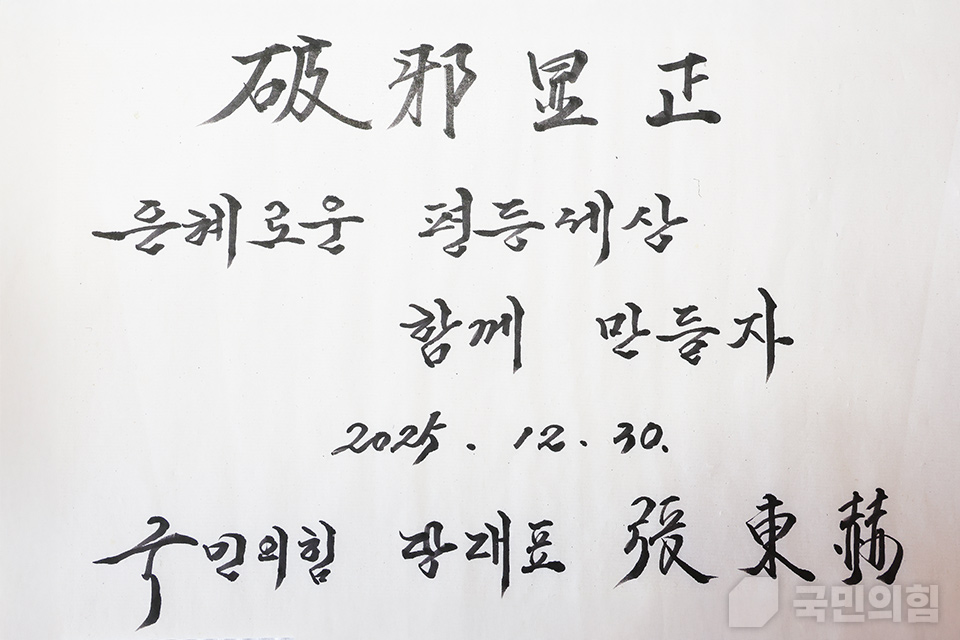 破邪显正
은혜로운 평등세상
함께 만들자
2025. 12. 30.
국민의힘 당대표 張東赫
국민의힘